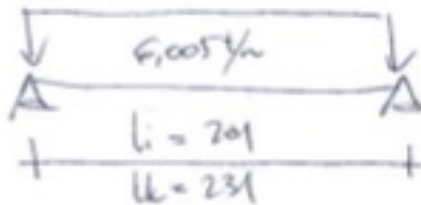 6,005 t/m
li = 201
lk = 231